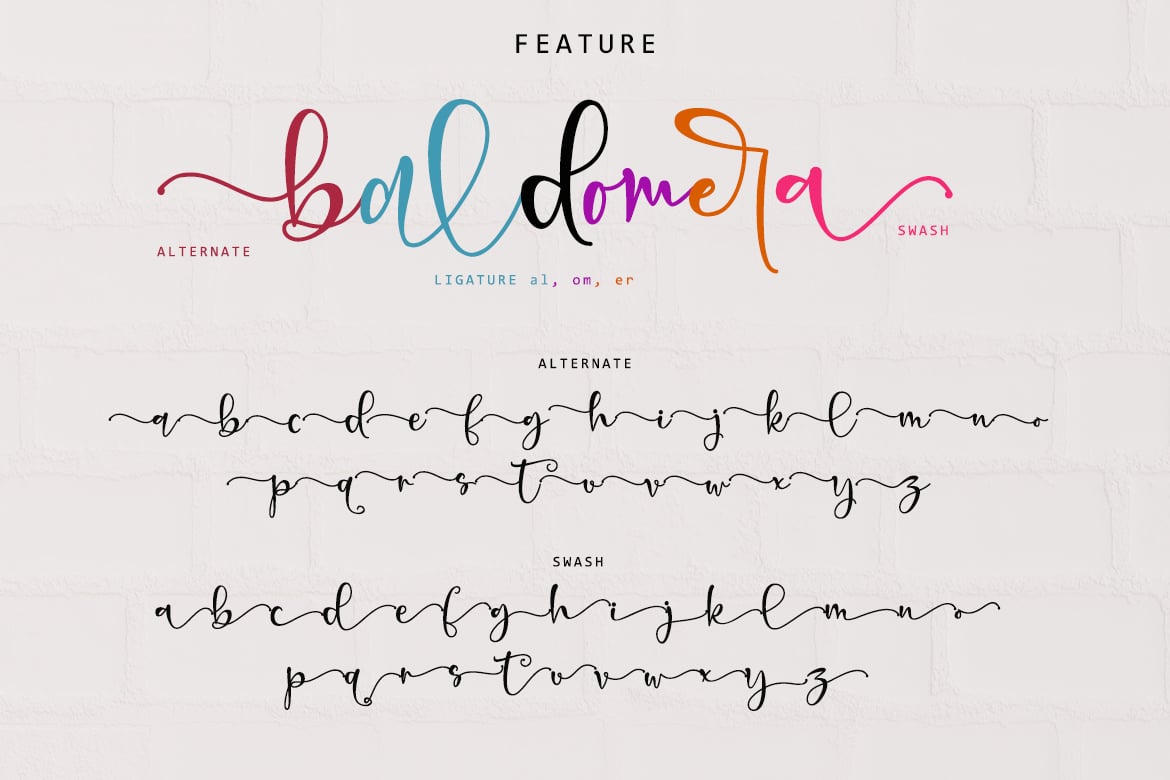 FEATURE
baldomera
ALTERNATE
SWASH
LIGATURE al, om, er
ALTERNATE
a b c d e f g h i j k l m n o
p q r s t u v w x y z
SWASH
a b c d e f g h i j k l m n o
p q r s t u v w x y z